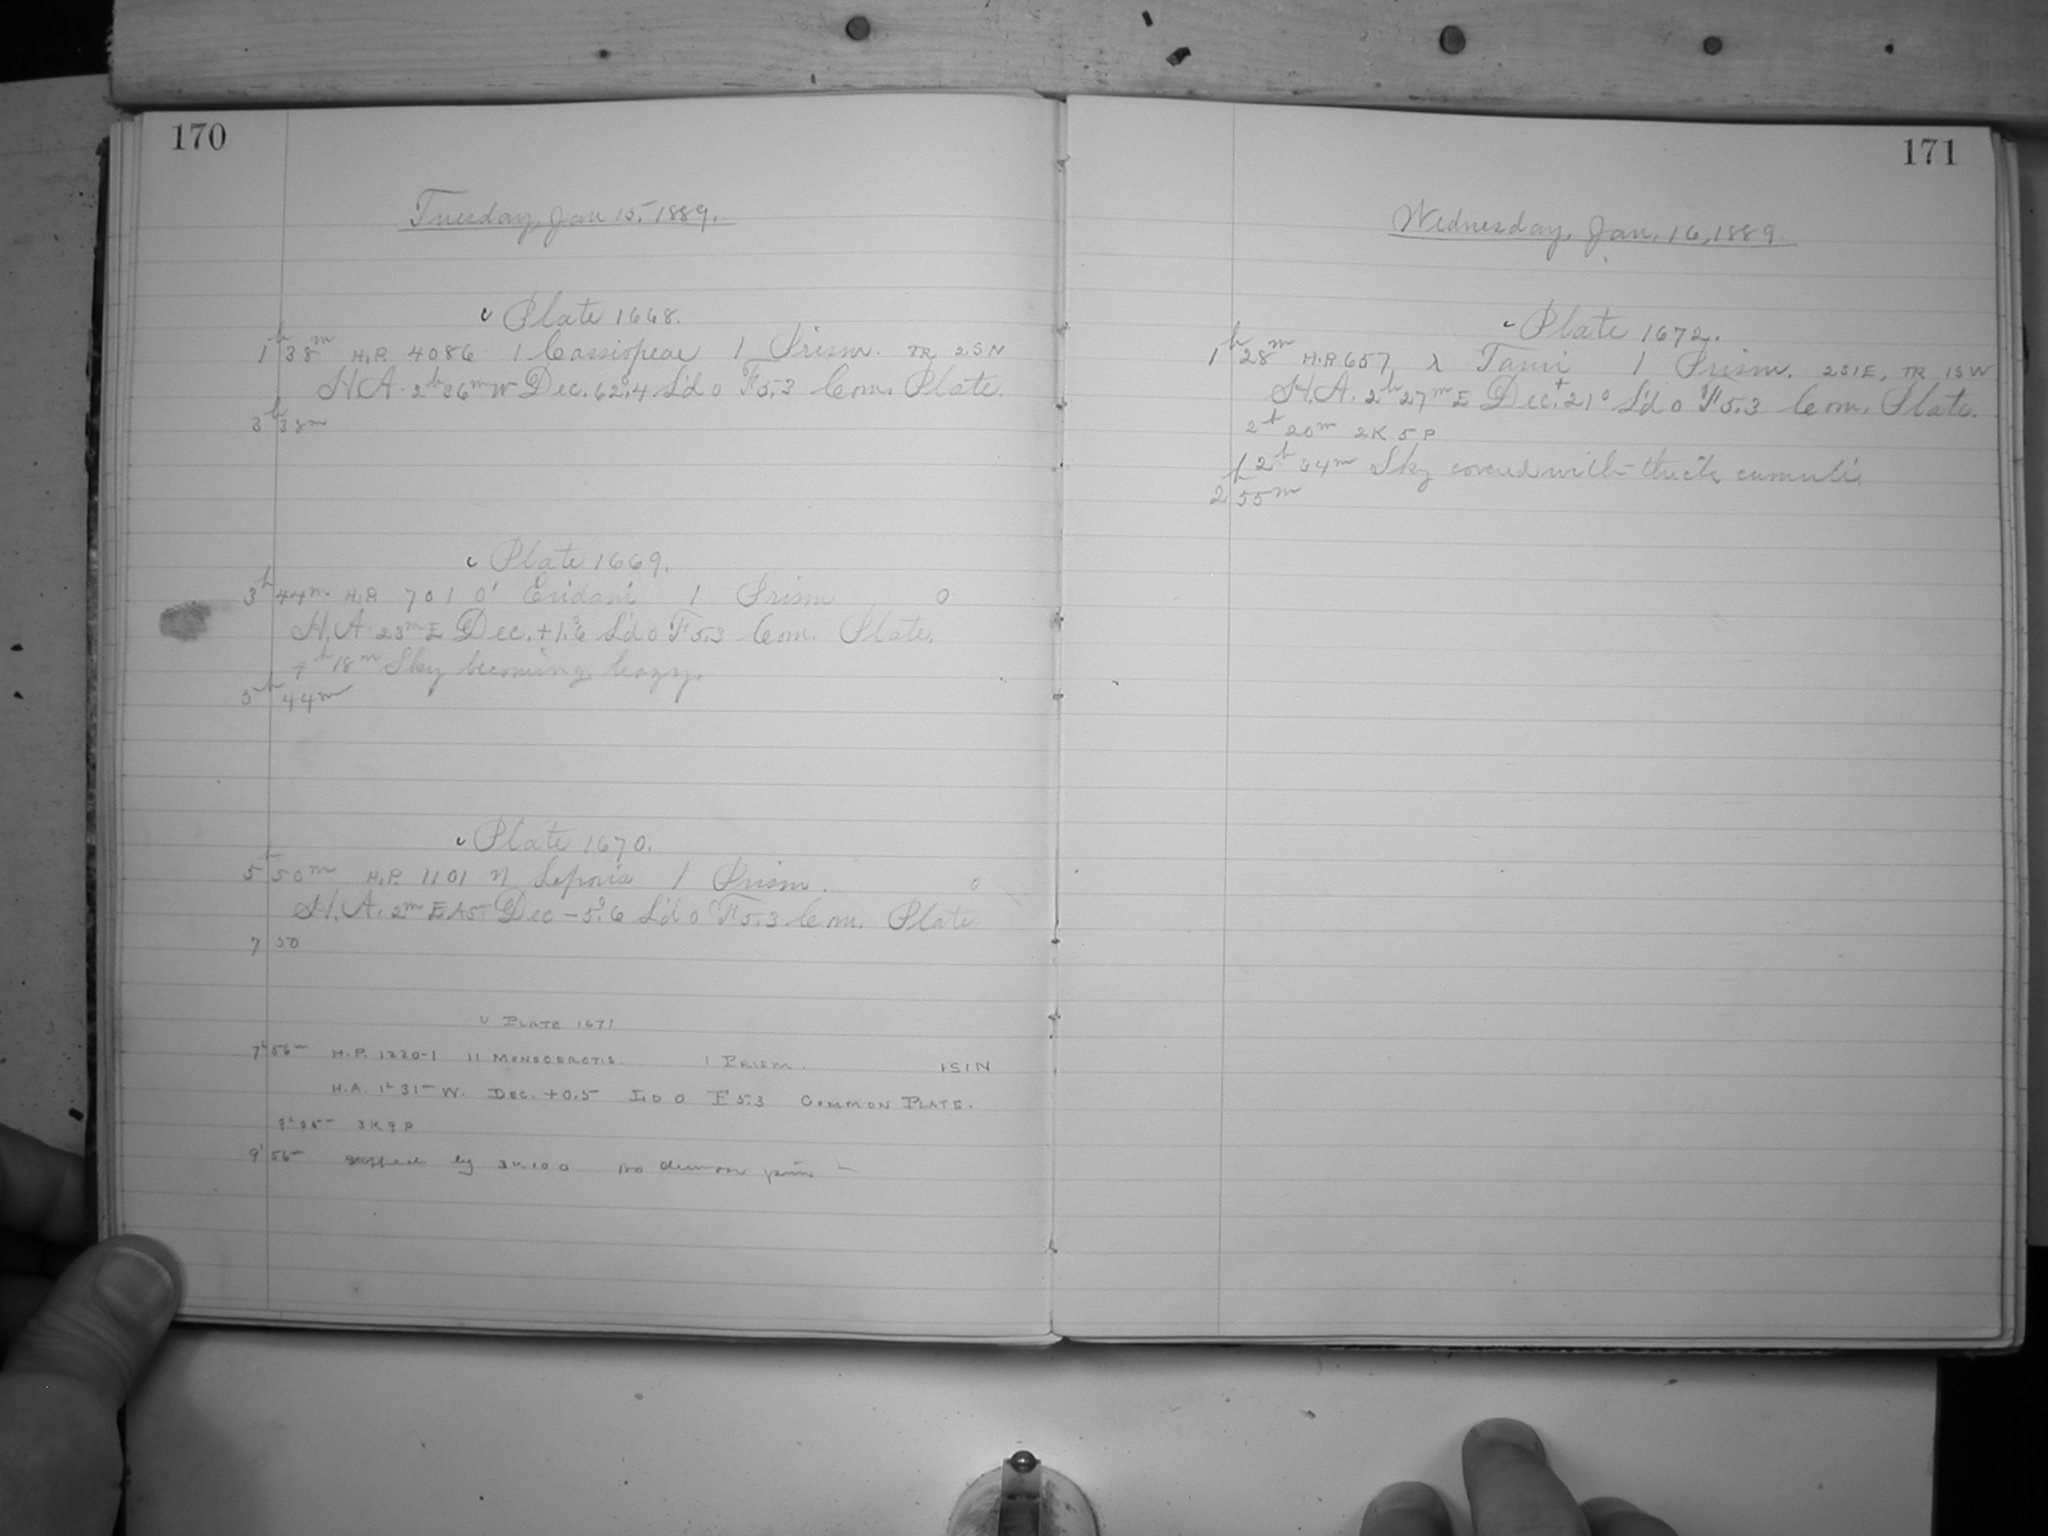 170
Tuesday, Jan 15, 1889.
Plate 1668.
1h 38m H.P. 4086 1 Cassiopeae 1 Prism. TR 2.5N
H.A. 2h 36m W Dec. 62°.4 L'd 0 F 5.3 Com. Plate.
3h 38m
Plate 1669.
3h 44m H.P. 701 o' Eridani 1 Prism 0
H.A. 23m E Dec. +1°.6 L'd 0 F 5.3 Com. Plate.
4h 18m Sky becoming hazy.
5h 44m
Plate 1670.
5h 50m H.P. 1101 η Leporis 1 Prism. 0
H.A. 2m EAST Dec -5°.6 L'd 0 F 5.3 Com. Plate
7 50
PLATE 1671
7h 56m H.P. 1220-1 11 MONOCEROTIS. 1 PRISM. 1S1N
H.A. 1h 31m W. DEC. +0.5 LD 0 F 5.3 COMMON PLATE.
9h 05m 3K9P
9h 56m stopped by 3K100 no
171
Wednesday, Jan. 16, 1889.
Plate 1672.
1h 28m H.P. 657 λ Tauri 1 Prism. 2S1E, TR 1SW
H.A. 2h 27m E Dec. +21° L'd 0 F 5.3 Com. Plate.
2h 20m 2K 5P
2h 34m Sky covered with thick cumuli.
2h 55m